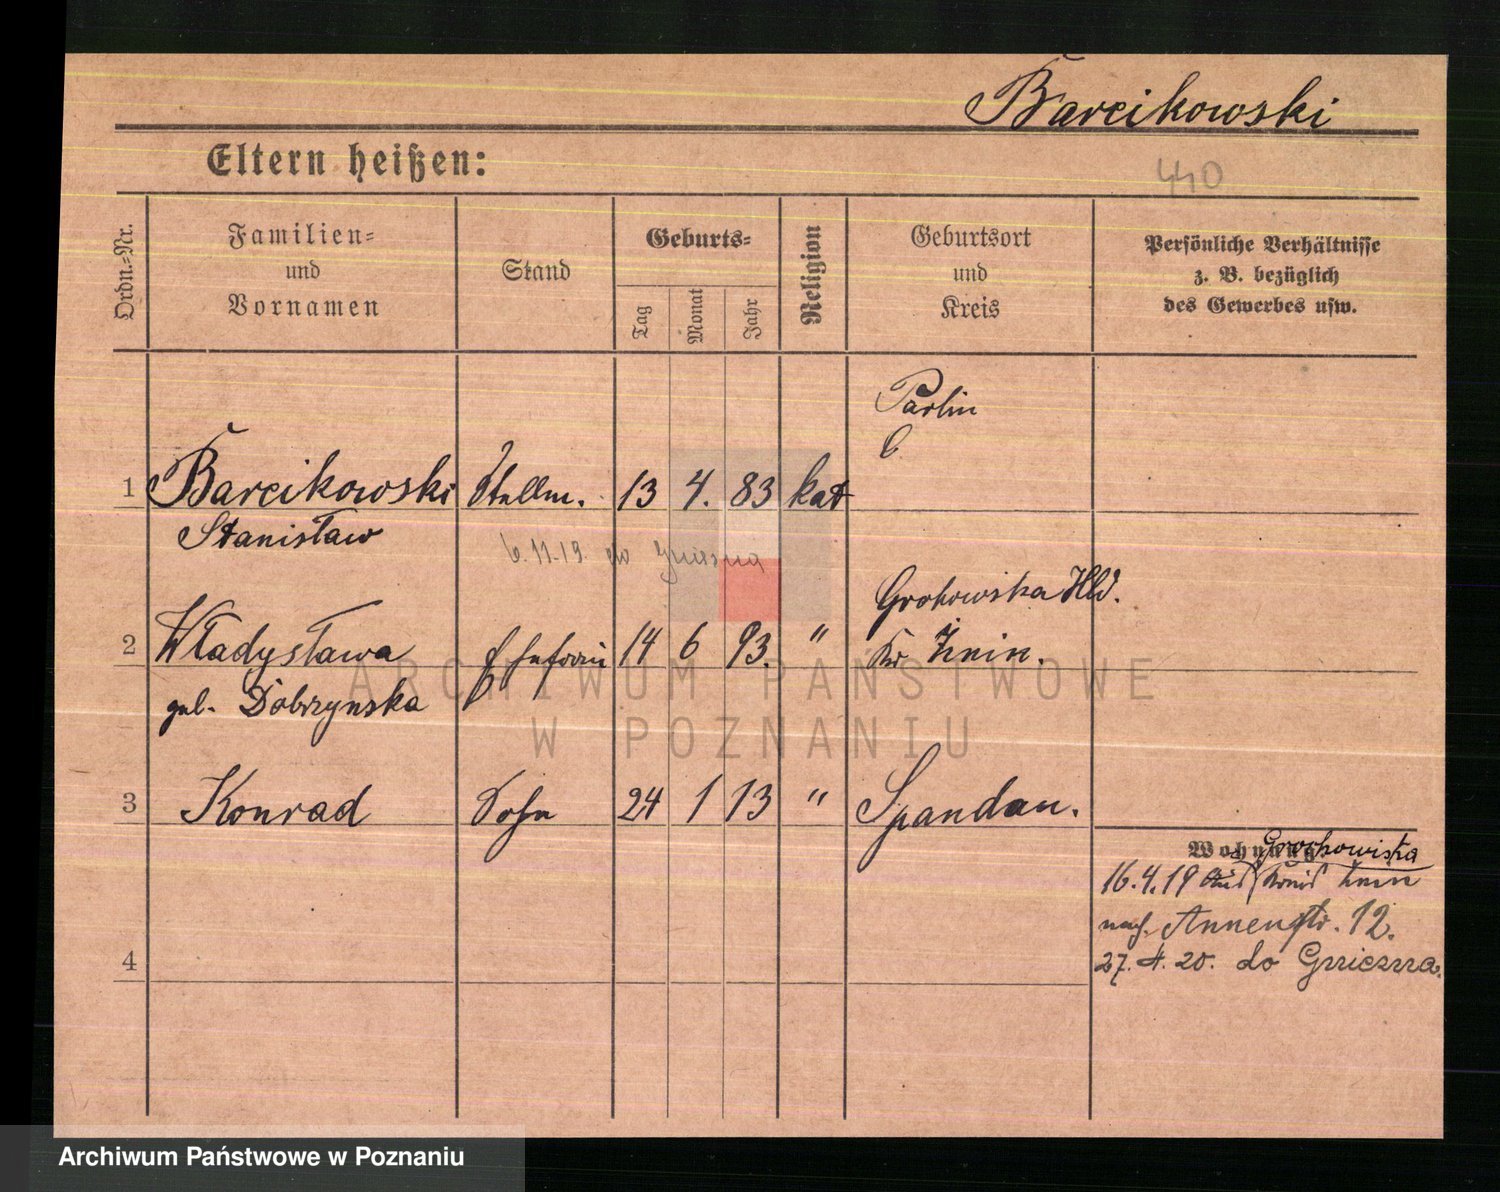 Barcikowski
Eltern heißen:
440
Ordn.-Nr.
Familien-
und
Vornamen
Stand
Geburts-
Tag
Monat
Jahr
Religion
Geburtsort
und
Kreis
Persönliche Verhältnisse
z. B. bezüglich
des Gewerbes usw.
Parlin
1 Barcikowski Stellm. 13 4. 83 kat
Stanisław
6.11.19. do Gniezna
Grohowiska Hld.
2 Władysława Ehefrau 14 6 93. " Kr Żnin.
geb. Dobrzynska
3 Konrad Sohn 24 1 13 " Spandau.
Wohnung
Grochowiska
16.4.19 Kreis Znin
nach Annenstr. 12.
4
27. 4. 20. do Gniezna.
ARCHIWUM PAŃSTWOWE
W POZNANIU
Archiwum Państwowe w Poznaniu